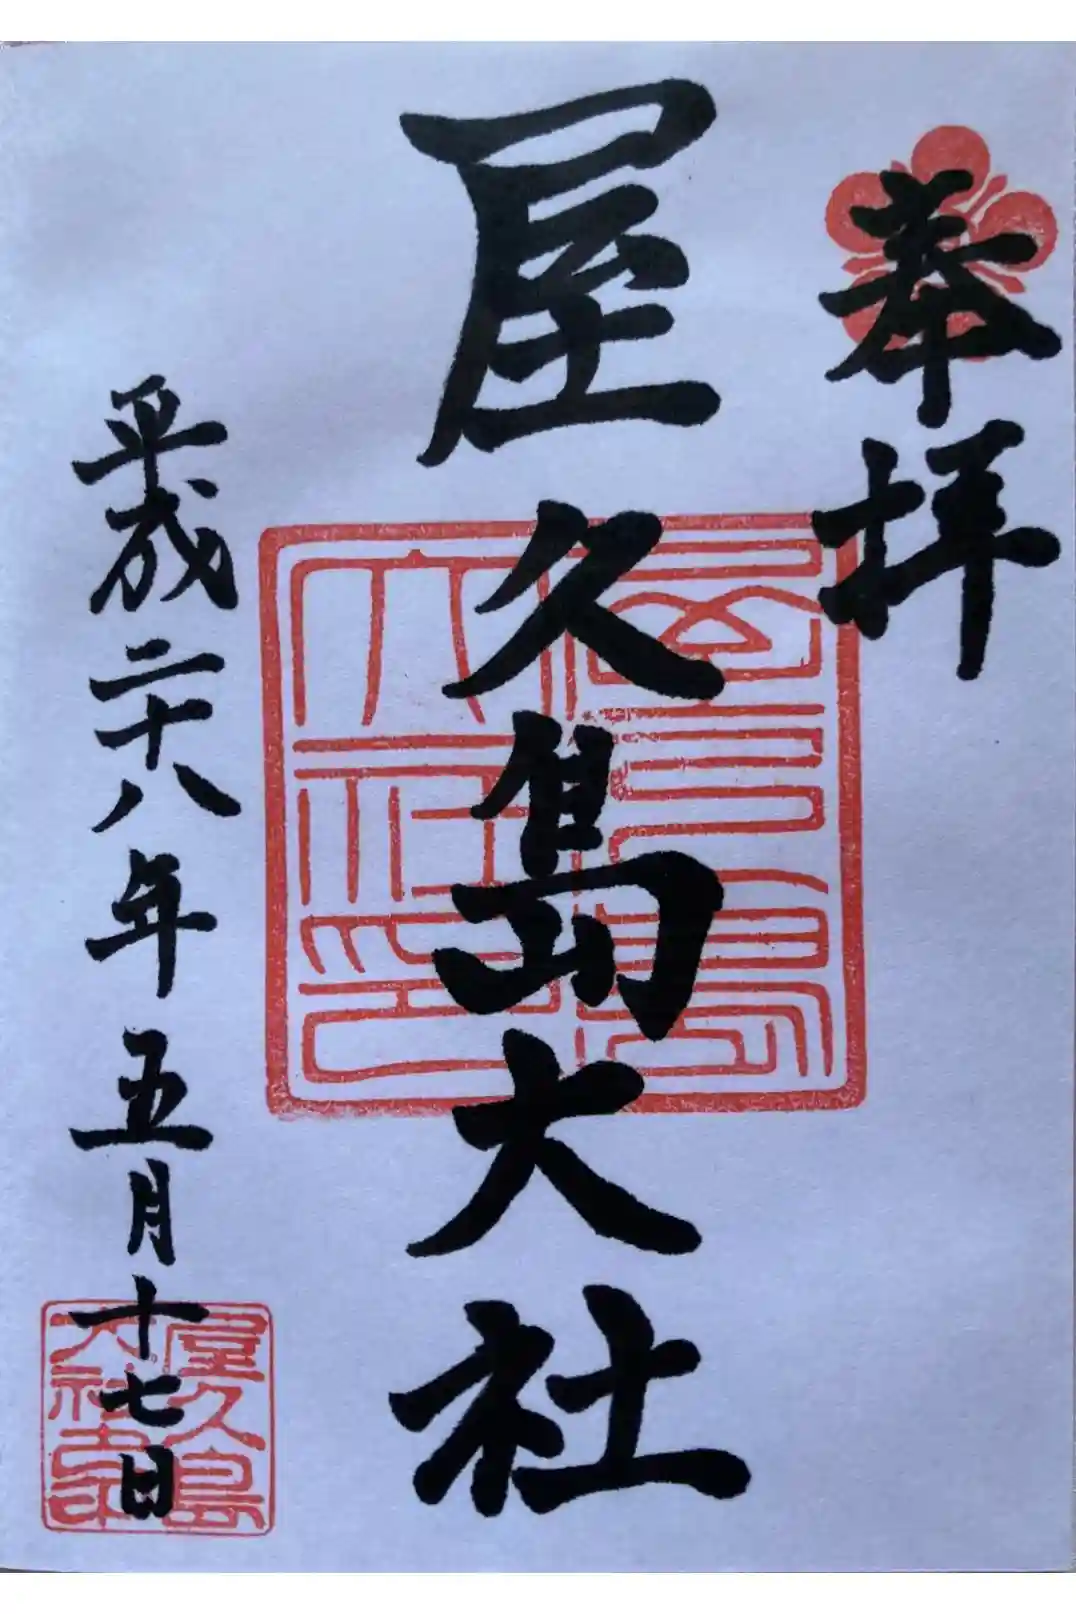 奉拝
屋久島大社
平成二十八年五月十七日
屋久島大社印
屋久島
大社寺印